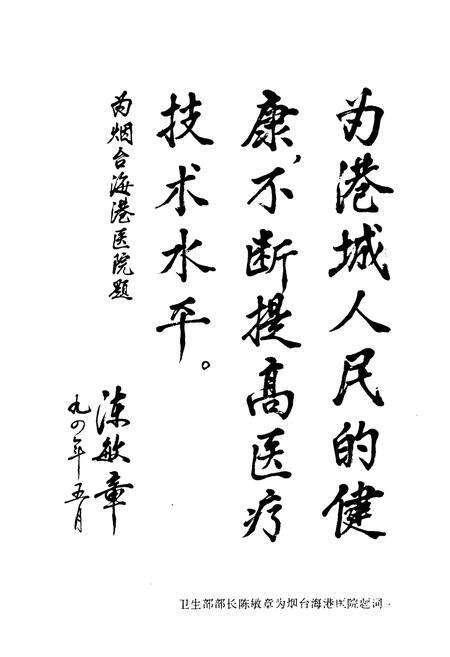 为港城人民的健
康，不断提高医疗
技术水平。
为烟台海港医院题
陈敏章
九四年五月
卫生部部长陈敏章为烟台海港医院题词